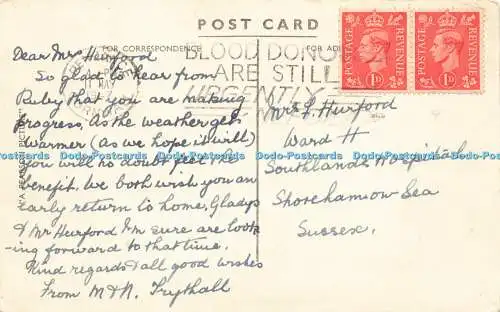 POST CARD
FOR CORRESPONDENCE
BLOOD DONO
ARE STILL
URGENTLY
FOR AD
POSTAGE REVENUE
1D
POSTAGE REVENUE
1D
MAY
Dear Mrs Hurford
So glad to hear from
Ruby that you are making
progress, As the weather gets
warmer (as we hope it will)
you will no doubt feel the
benefit. We both wish you an
early return to home. Gladys
& Mr Hurford I'm sure are look
-ing forward to that time.
Kind regards & all good wishes
From M & N. Trythall
Mrs L. Hurford
Ward H
Southlands Hospital
Shorehamison Sea
Sussex.
"A PEARSON PICTURE"
Postcards Postcards Postcards Postcards Postcards